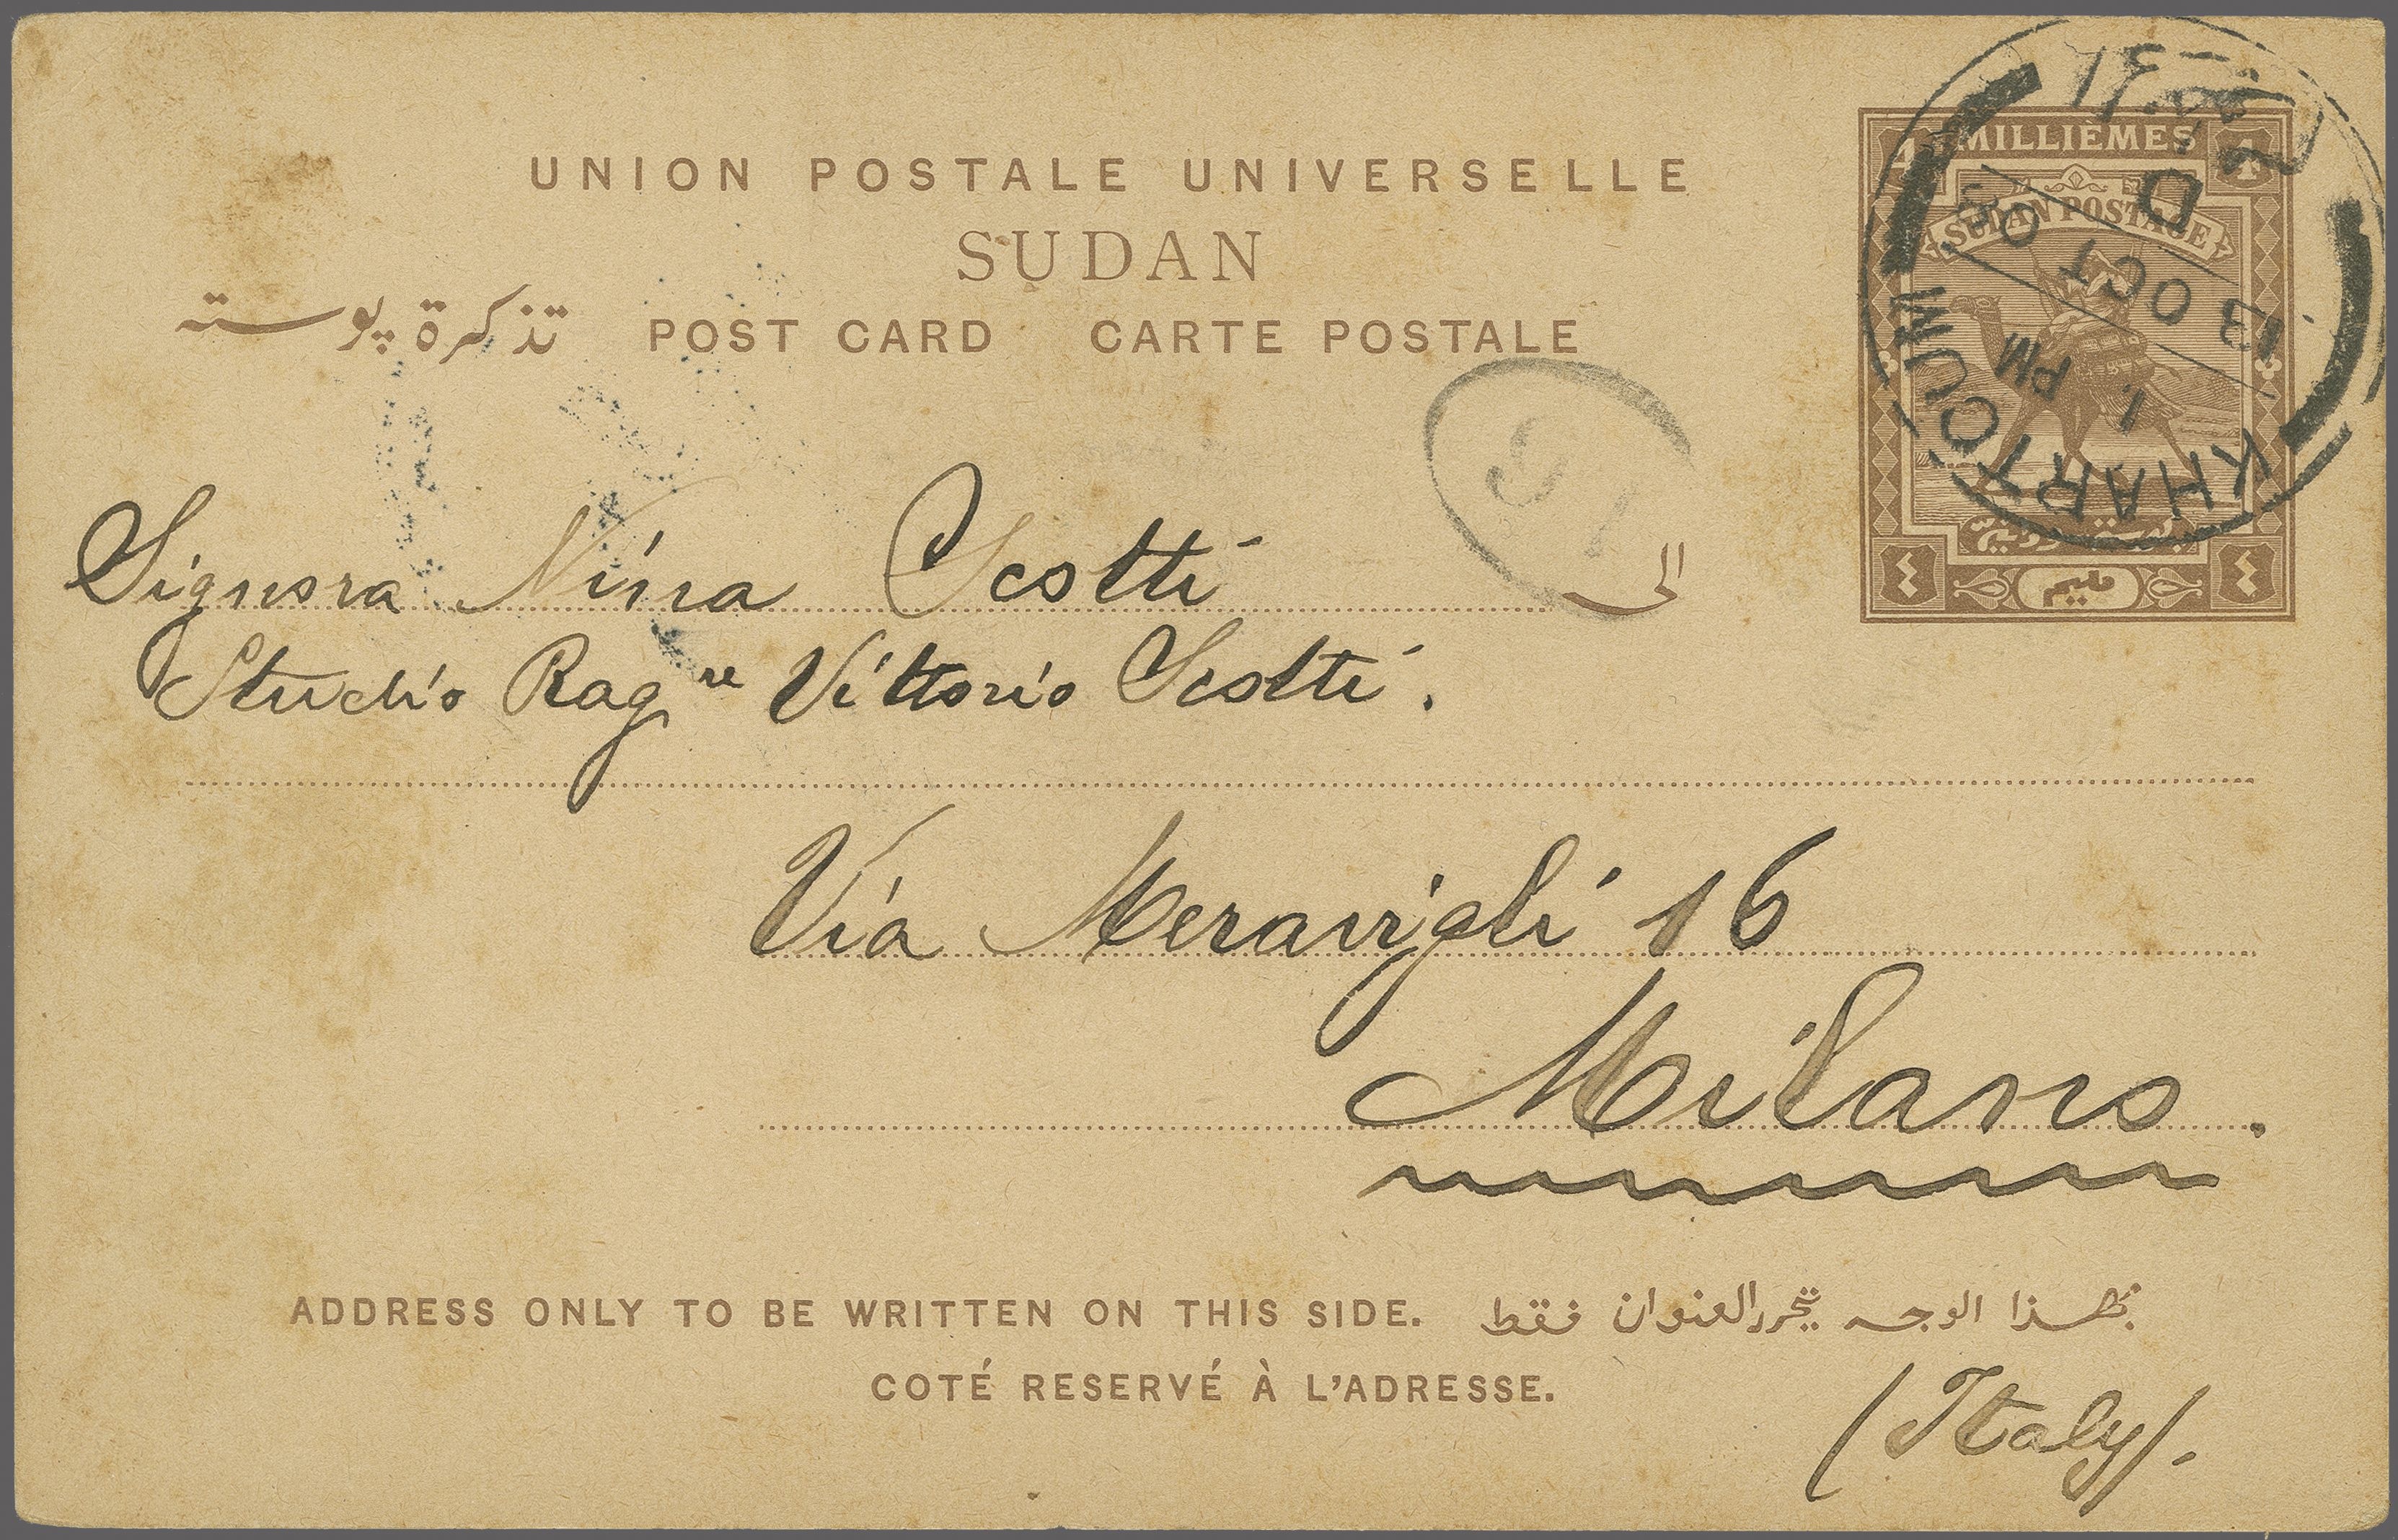 UNION POSTALE UNIVERSELLE
SUDAN
تذكرة پوسته POST CARD CARTE POSTALE
4 MILLIÈMES 4
SUDAN POSTAGE
٤ مليم ٤
KHARTOUM
D
13 OCT 03
1. PM
الى
Signora Nina Scotti
Studio Rag.re Vittorio Scotti.
Via Meravigli 16
Milano.
ADDRESS ONLY TO BE WRITTEN ON THIS SIDE. بهذا الوجه يتحرر العنوان فقط
COTÉ RESERVÉ À L'ADRESSE.
(Italy).